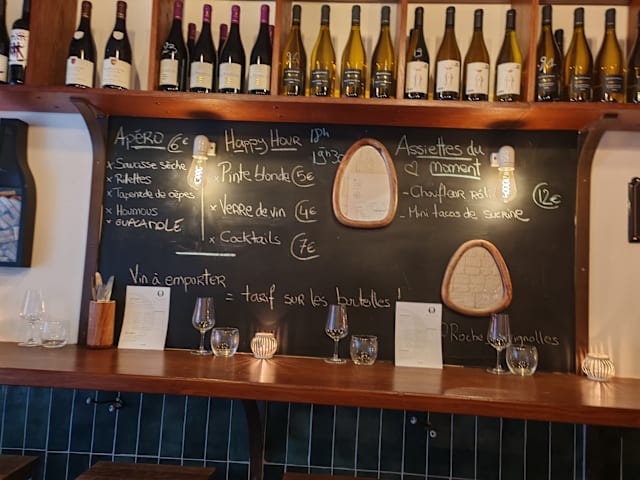 Apéro 6€
x Saucisse sèche
x Rillettes
x Tapenade de cèpes
x Houmous
x GUACAMOLE
Happy Hour 18h
19h30
x Pinte blonde 5€
x Verre de vin 4€
x Cocktails 7€
Assiettes du
moment
- Choufleur rôti
- Mini tacos de sucrine
12€
Vin à emporter
= tarif sur les bouteilles !